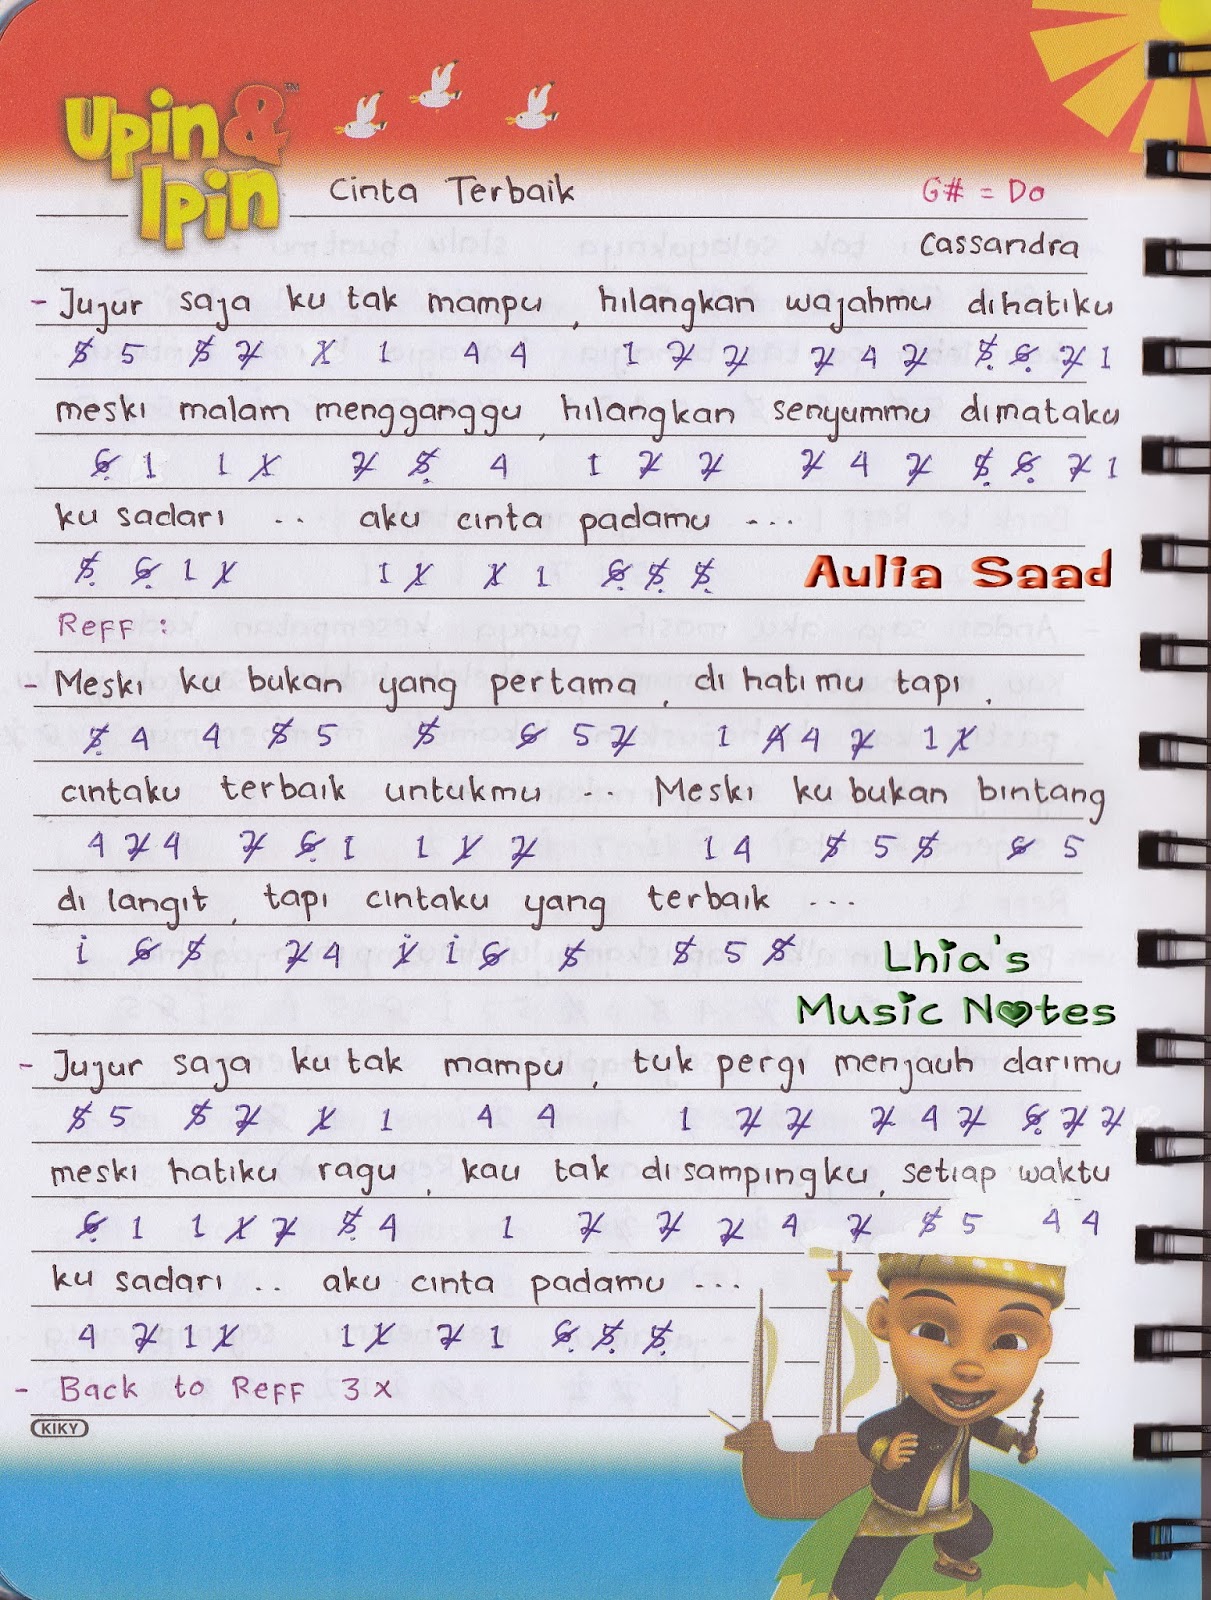 Upin & Ipin™
Cinta Terbaik G# = Do
Cassandra
- Jujur saja ku tak mampu , hilangkan wajahmu dihatiku
5̸ 5 5̸ 2̸ 1̸ 1 4 4 1 2̸ 2̸ 2̸ 4 2̸ 5̸ 6̸ 2̸ 1
meski malam mengganggu , hilangkan senyummu dimataku
6̸ 1 1 1̸ 2̸ 5̸ 4 1 2̸ 2̸ 2̸ 4 2̸ 5̸ 6̸ 2̸ 1
ku sadari .. aku cinta padamu ...
5̸ 6̸ 1 1̸ 1 1̸ 1̸ 1 6̸ 5̸ 5̸
Aulia Saad
Reff :
- Meski ku bukan yang pertama , di hati mu tapi ,
5̸ 4 4 5̸ 5 5̸ 6̸ 5 2̸ 1 4̸ 4 2̸ 1 1̸
cintaku terbaik untukmu ... Meski ku bukan bintang
4 2̸ 4 2̸ 6̸ 1 1 1̸ 2̸ 1 4 5̸ 5 5̸ 6̸ 5
di langit , tapi cintaku yang terbaik ...
i 6̸ 5̸ 2̸ 4 1̸ i 6̸ 5̸ 5̸ 5 5̸
Lhia's
Music Notes
- Jujur saja ku tak mampu , tuk pergi menjauh darimu
5̸ 5 5̸ 2̸ 1̸ 1 4 4 1 2̸ 2̸ 2̸ 4 2̸ 6̸ 2̸ 2̸
meski hatiku ragu , kau tak disampingku, setiap waktu
6̸ 1 1 1̸ 2̸ 5̸ 4 1 2̸ 2̸ 2̸ 4 2̸ 5̸ 5 4 4
ku sadari .. aku cinta padamu ...
4 2̸ 1 1̸ 1 1̸ 2̸ 1 6̸ 5̸ 5̸
- Back to Reff 3 x
KIKY